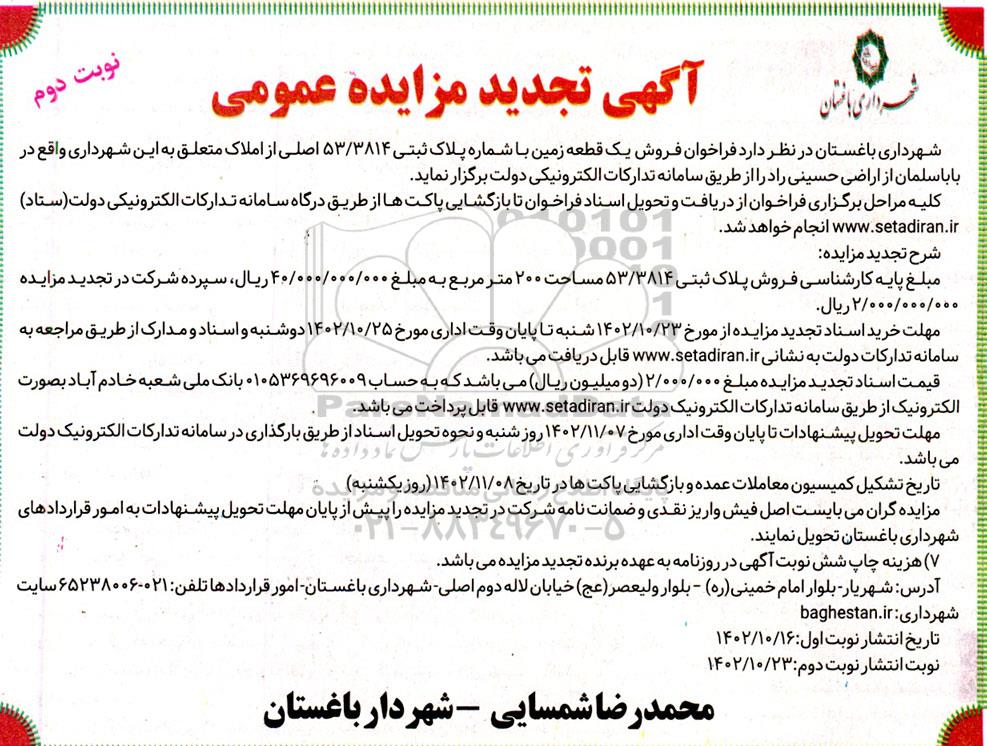 شهرداری باغستان
نوبت دوم
آگهی تجدید مزایده عمومی
شهرداری باغستان در نظر دارد فراخوان فروش یک قطعه زمین با شماره پلاک ثبتی ۵۳/۳۸۱۴ اصلی از املاک متعلق به این شهرداری واقع در
باباسلمان از اراضی حسینی راد را از طریق سامانه تدارکات الکترونیکی دولت برگزار نماید.
کلیه مراحل برگزاری فراخوان از دریافت و تحویل اسناد فراخوان تا بازگشایی پاکت ها از طریق درگاه سامانه تدارکات الکترونیکی دولت (ستاد)
www.setadiran.ir انجام خواهد شد.
شرح تجدید مزایده:
مبلغ پایه کارشناسی فروش پلاک ثبتی ۵۳/۳۸۱۴ مساحت ۲۰۰ متر مربع به مبلغ ۴۰/۰۰۰/۰۰۰/۰۰۰ ریال، سپرده شرکت در تجدید مزایده
۲/۰۰۰/۰۰۰/۰۰۰ ریال.
مهلت خرید اسناد تجدید مزایده از مورخ ۱۴۰۲/۱۰/۲۳ شنبه تا پایان وقت اداری مورخ ۱۴۰۲/۱۰/۲۵ دوشنبه و اسناد و مدارک از طریق مراجعه به
سامانه تدارکات دولت به نشانی www.setadiran.ir قابل دریافت می باشد.
قیمت اسناد تجدید مزایده مبلغ ۲/۰۰۰/۰۰۰ (دو میلیون ریال) می باشد که به حساب ۰۱۰۵۳۶۹۶۹۶۰۰۹ بانک ملی شعبه خادم آباد بصورت
الکترونیک از طریق سامانه تدارکات الکترونیک دولت www.setadiran.ir قابل پرداخت می باشد.
مهلت تحویل پیشنهادات تا پایان وقت اداری مورخ ۱۴۰۲/۱۱/۰۷ روز شنبه و نحوه تحویل اسناد از طریق بارگذاری در سامانه تدارکات الکترونیک دولت
می باشد.
تاریخ تشکیل کمیسیون معاملات عمده و بازگشایی پاکت ها در تاریخ ۱۴۰۲/۱۱/۰۸ (روز یکشنبه)
مزایده گران می بایست اصل فیش واریز نقدی و ضمانت نامه شرکت در تجدید مزایده را پیش از پایان مهلت تحویل پیشنهادات به امور قراردادهای
شهرداری باغستان تحویل نمایند.
۷) هزینه چاپ شش نوبت آگهی در روزنامه به عهده برنده تجدید مزایده می باشد.
آدرس: شهریار- بلوار امام خمینی (ره) - بلوار ولیعصر (عج) خیابان لاله دوم اصلی- شهرداری باغستان- امور قراردادها تلفن: ۰۲۱-۶۵۲۳۸۰۰۶ سایت
شهرداری: baghestan.ir
تاریخ انتشار نوبت اول: ۱۴۰۲/۱۰/۱۶
نوبت انتشار نوبت دوم: ۱۴۰۲/۱۰/۲۳
محمدرضا شمسایی - شهردار باغستان
ParsNamadData
مرکز فرآوری اطلاعات پارس نماد داده ها
۰۲۱-۸۸۳۴۹۶۷۰-۵